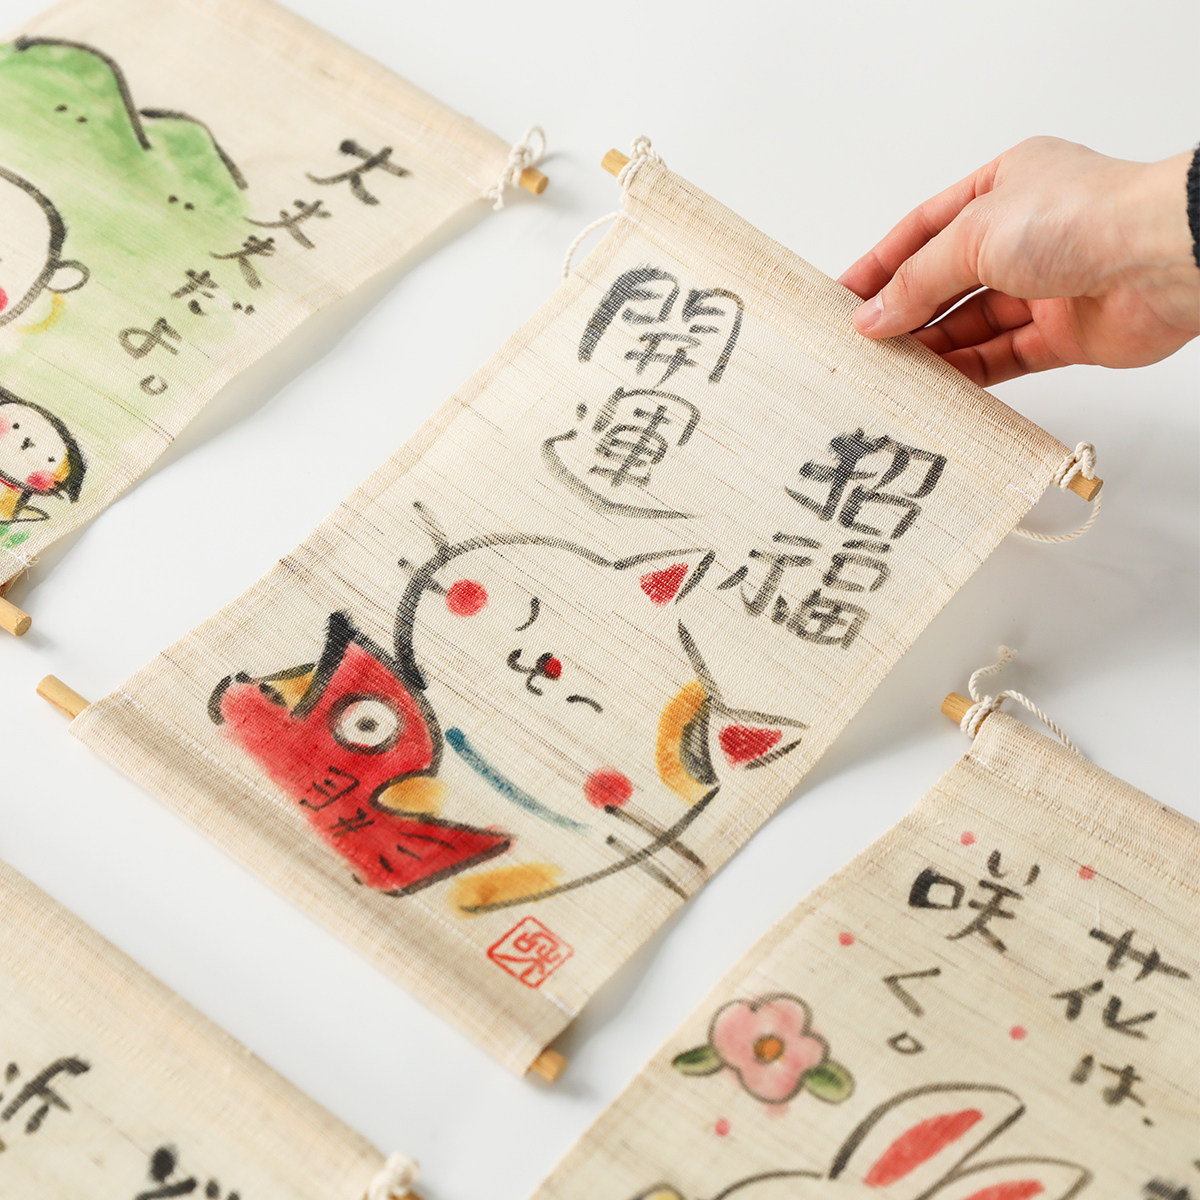 大丈夫だよ。
招福
開運
花は、
咲く。